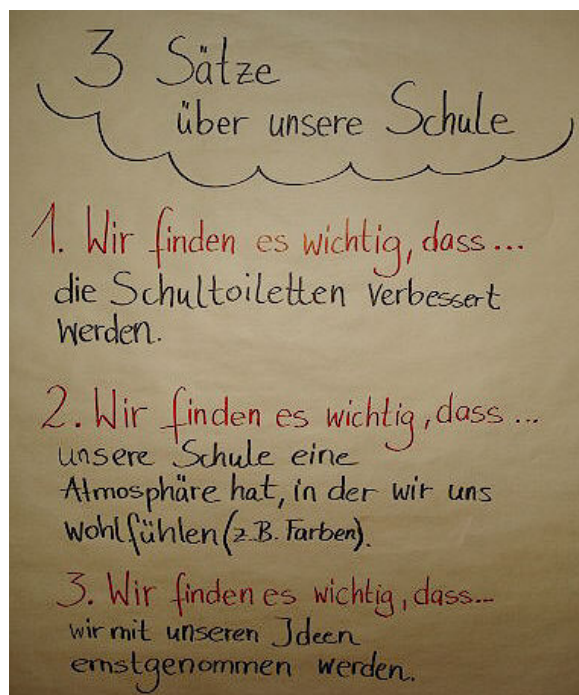 3 Sätze
über unsere Schule
1. Wir finden es wichtig, dass...
die Schultoiletten verbessert
werden.
2. Wir finden es wichtig, dass...
unsere Schule eine
Atmosphäre hat, in der wir uns
wohlfühlen (z.B. Farben).
3. Wir finden es wichtig, dass...
wir mit unseren Ideen
ernstgenommen werden.